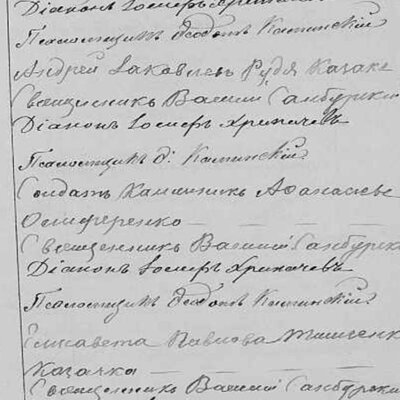 Діаконъ Іосифъ Хрипачевъ
Псаломщикъ Ѳеодотъ Калтинскій
Андрей Іаковлевъ Рудя Казакъ
Священникъ Василій Самбурски
Діаконъ Іосифъ Хрипачевъ
Псаломщикъ Ѳ. Калтинскій
Солдатъ Каминникъ Аѳанасіев
Онуференко
Священникъ Василій Самбурск
Діаконъ Іосифъ Хрипачевъ
Псаломщикъ Ѳеодотъ Калтинскій
Елисавета Павлова Тишенк
Казачка
Священникъ Василій Самбурски